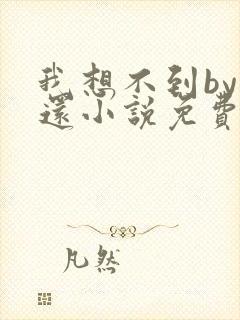 我想不到by
還小說免費
凡然